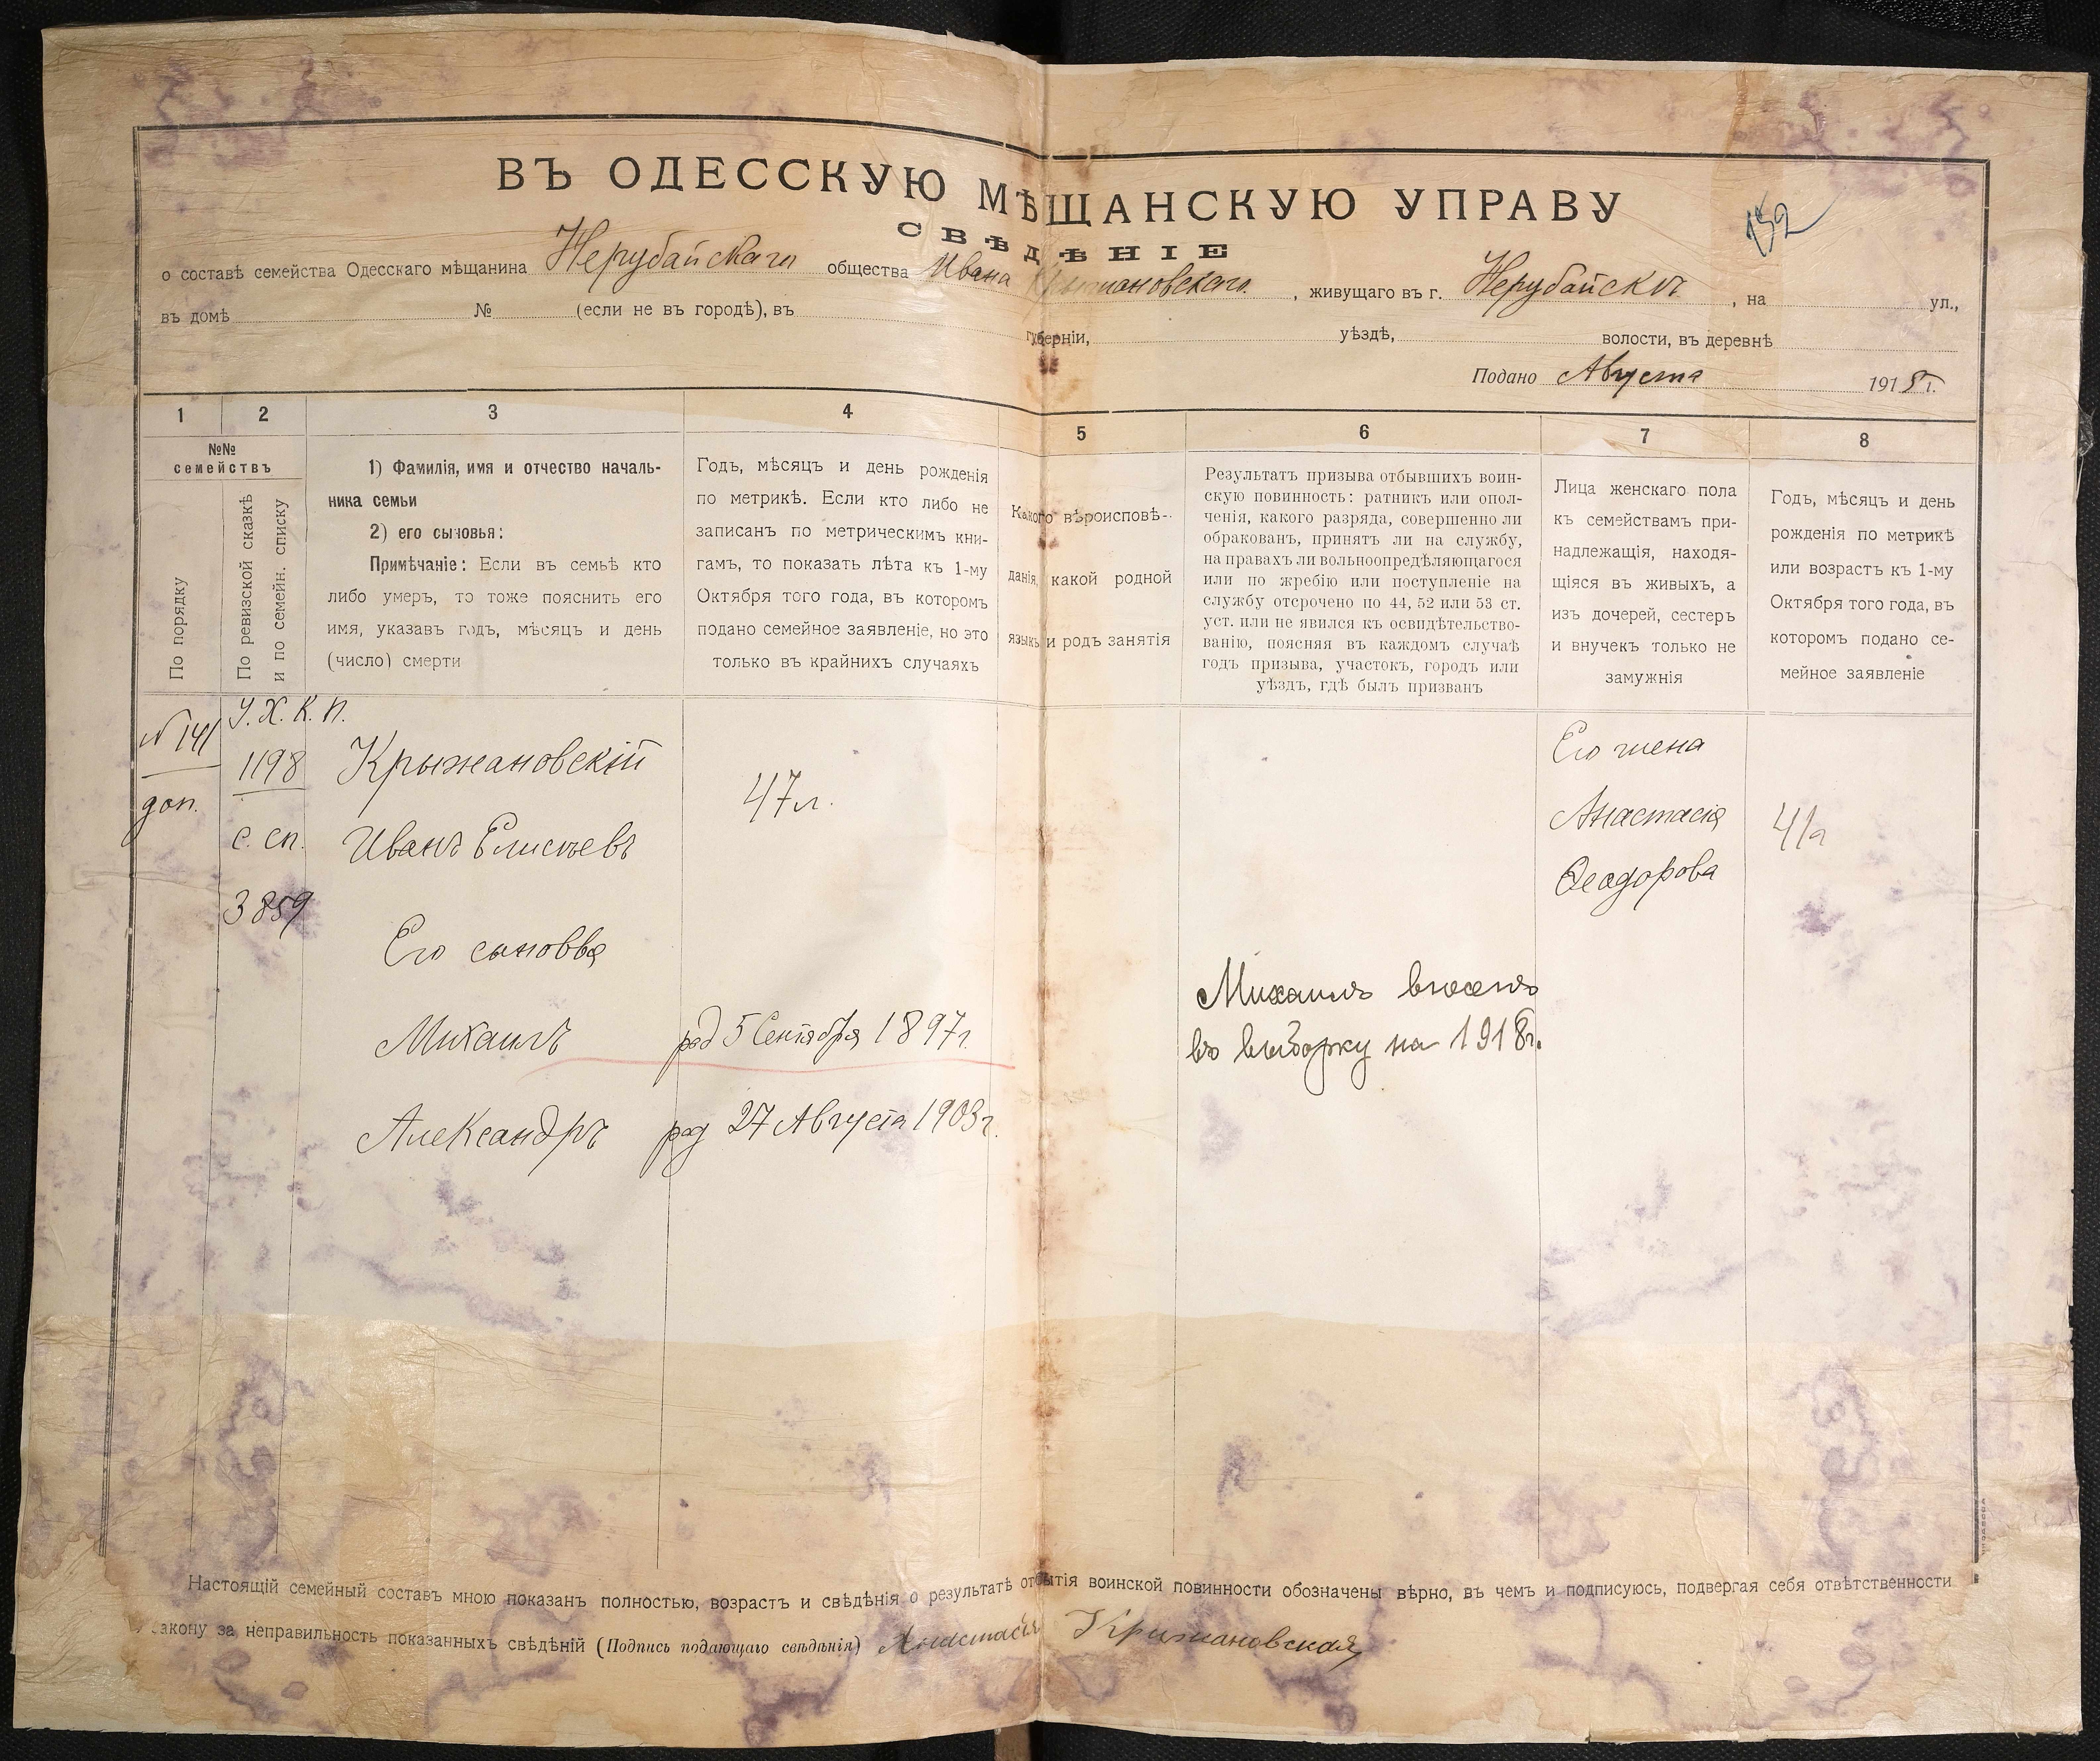 ВЪ ОДЕССКУЮ МѢЩАНСКУЮ УПРАВУ
152
СВѢДѢНІЕ
о составѣ семейства Одесскаго мѣщанина Нерубайскаго общества Ивана Крыжановскаго, живущаго въ г. Нерубайскѣ, на ул.,
въ домѣ № (если не въ городѣ), въ губерніи, уѣздѣ, волости, въ деревнѣ
Подано Августа 1915 г.
1 2 3 4 5 6 7 8
№№
семействъ
По порядку
По ревизской сказкѣ
и по семейн. списку
1) Фамилія, имя и отчество началь-
ника семьи
2) его сыновья:
Примѣчаніе: Если въ семьѣ кто
либо умеръ, то тоже пояснить его
имя, указавъ годъ, мѣсяцъ и день
(число) смерти
Годъ, мѣсяцъ и день рожденія
по метрикѣ. Если кто либо не
записанъ по метрическимъ кни-
гамъ, то показать лѣта къ 1-му
Октября того года, въ которомъ
подано семейное заявленіе, но это
только въ крайнихъ случаяхъ
Какого вѣроисповѣ-
данія, какой родной
языкъ и родъ занятія
Результатъ призыва отбывшихъ воин-
скую повинность: ратникъ или опол-
ченія, какого разряда, совершенно ли
обракованъ, принятъ ли на службу,
на правахъ ли вольноопредѣляющагося
или по жребію или поступленіе на
службу отсрочено по 44, 52 или 53 ст.
уст. или не явился къ освидѣтельство-
ванію, поясняя въ каждомъ случаѣ
годъ призыва, участокъ, городъ или
уѣздъ, гдѣ былъ призванъ
Лица женскаго пола
къ семействамъ при-
надлежащія, находя-
щіяся въ живыхъ, а
изъ дочерей, сестеръ
и внучекъ только не
замужнія
Годъ, мѣсяцъ и день
рожденія по метрикѣ
или возрастъ къ 1-му
Октября того года, въ
которомъ подано се-
мейное заявленіе
№ 141
доп.
У. Х. К. П.
1198
с. сп.
3859
Крыжановскій
Иванъ Елисѣевъ
47 л.
Его сыновья
Михаилъ род 5 Сентября 1897 г.
Александръ род 27 Августа 1903 г.
Михаилъ внесенъ
въ выборку на 1918 г.
Его жена
Анастасія
Ѳеодорова
41 л
Настоящій семейный составъ мною показанъ полностью, возрастъ и свѣдѣнія о результатѣ отбытія воинской повинности обозначены вѣрно, въ чемъ и подписуюсь, подвергая себя отвѣтственности
закону за неправильность показанныхъ свѣдѣній (Подпись подающаго свѣдѣнія) Анастасія Крижановская